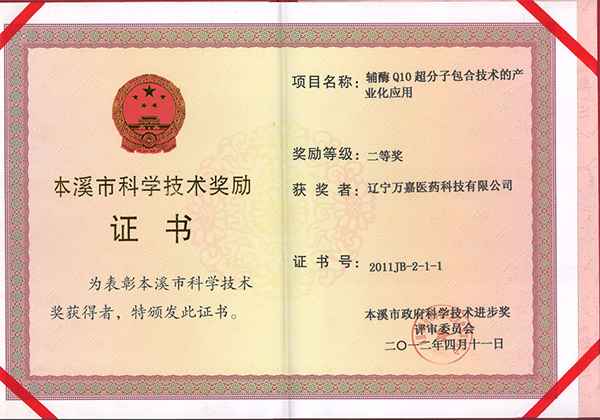 本溪市科学技术奖励
证书
为表彰本溪市科学技术
奖获得者，特颁发此证书。
项目名称：辅酶Q10超分子包合技术的产
业化应用
奖励等级：二等奖
获奖者：辽宁万嘉医药科技有限公司
证书号：2011JB-2-1-1
本溪市政府科学技术进步奖
评审委员会
二〇一二年四月十一日